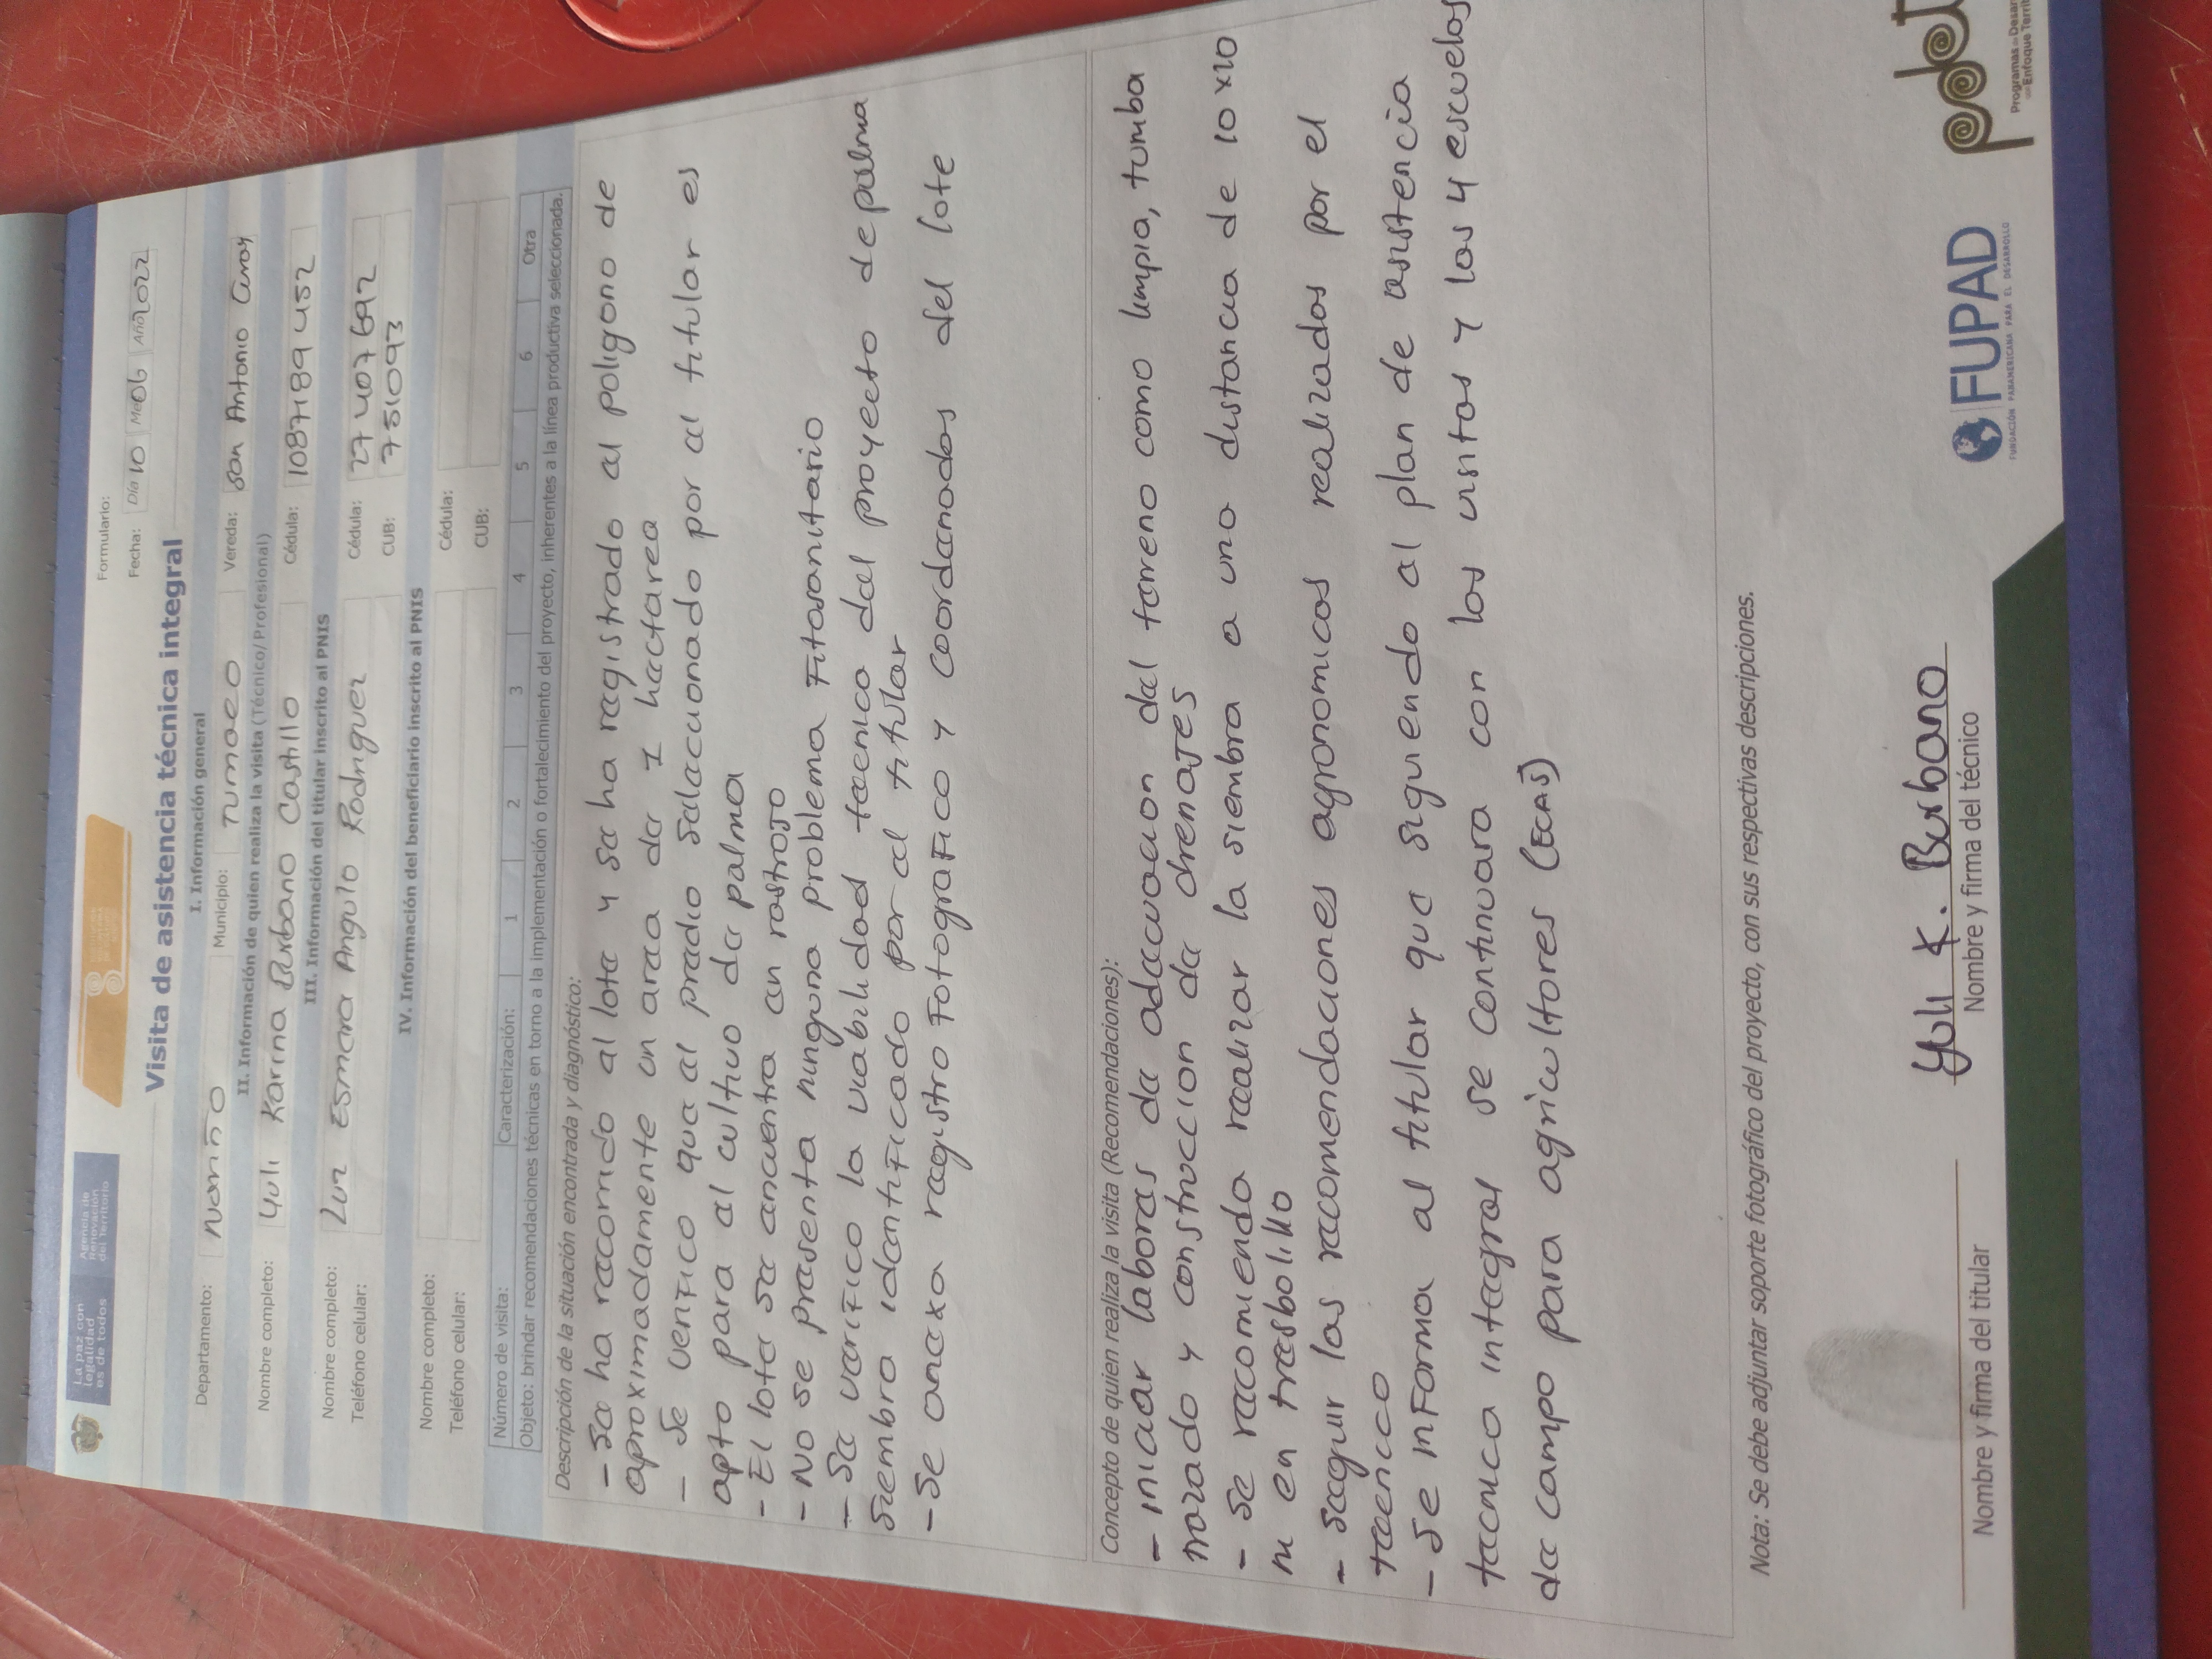 La paz con
legalidad
es de todos
Agencia de
Renovación
del Territorio
Formulario:
Fecha: Día 10 Mes 06 Año 2022
Visita de asistencia técnica integral
I. Información general
Departamento: Nariño Municipio: Tumaco Vereda: San Antonio Curay
II. Información de quien realiza la visita (Técnico/Profesional)
Nombre completo: Yuli Karina Burbano Castillo Cédula: 1087189452
III. Información del titular inscrito al PNIS
Nombre completo: Luz Esmera Angulo Rodriguez Cédula: 27407692
Teléfono celular: CUB: 751093
IV. Información del beneficiario inscrito al PNIS
Nombre completo: Cédula:
Teléfono celular: CUB:
Número de visita: Caracterización: 1 2 3 4 5 6 Otra
Objeto: brindar recomendaciones técnicas en torno a la implementación o fortalecimiento del proyecto, inherentes a la línea productiva seleccionada.
Descripción de la situación encontrada y diagnóstico:
- Se ha recorrido el lote y se ha registrado el poligono de
aproximadamente un area de 1 hectarea
- Se verifico que el predio seleccionado por el titular es
apto para el cultivo de palma
- El lote se encuentra en rastrojo
- No se presenta ninguno problema Fitosanitario
- Se verifico la viabilidad tecnica del proyecto de palma
siembra identificado por el titular
- Se anexa registro Fotografico y coordenadas del lote
Concepto de quien realiza la visita (Recomendaciones):
- iniciar labores de adecuacion del terreno como limpia, tumba
trazado y construccion de drenajes
- Se recomienda realizar la siembra a una distancia de 10x10
m en tresbolillo
- seguir las recomendaciones agronomicas realizadas por el
tecnico
- Se informa al titular que siguiendo al plan de asistencia
tecnica integral se continuara con las visitas y las 4 escuelas
de campo para agricultores (ECAS)
Nota: Se debe adjuntar soporte fotográfico del proyecto, con sus respectivas descripciones.
Yuli K. Burbano
Nombre y firma del titular Nombre y firma del técnico
FUPAD
FUNDACIÓN PANAMERICANA PARA EL DESARROLLO
pdet
Programas de Desar
con Enfoque Territ